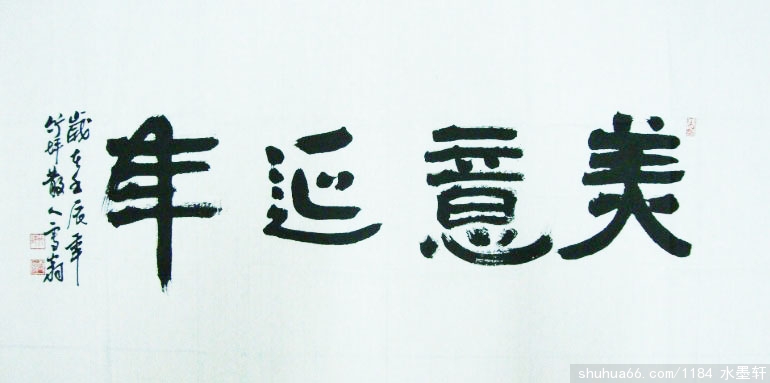 美意延年
歲在壬辰年
竹坪散人雪翁
shuhua66.com/1184 水墨轩